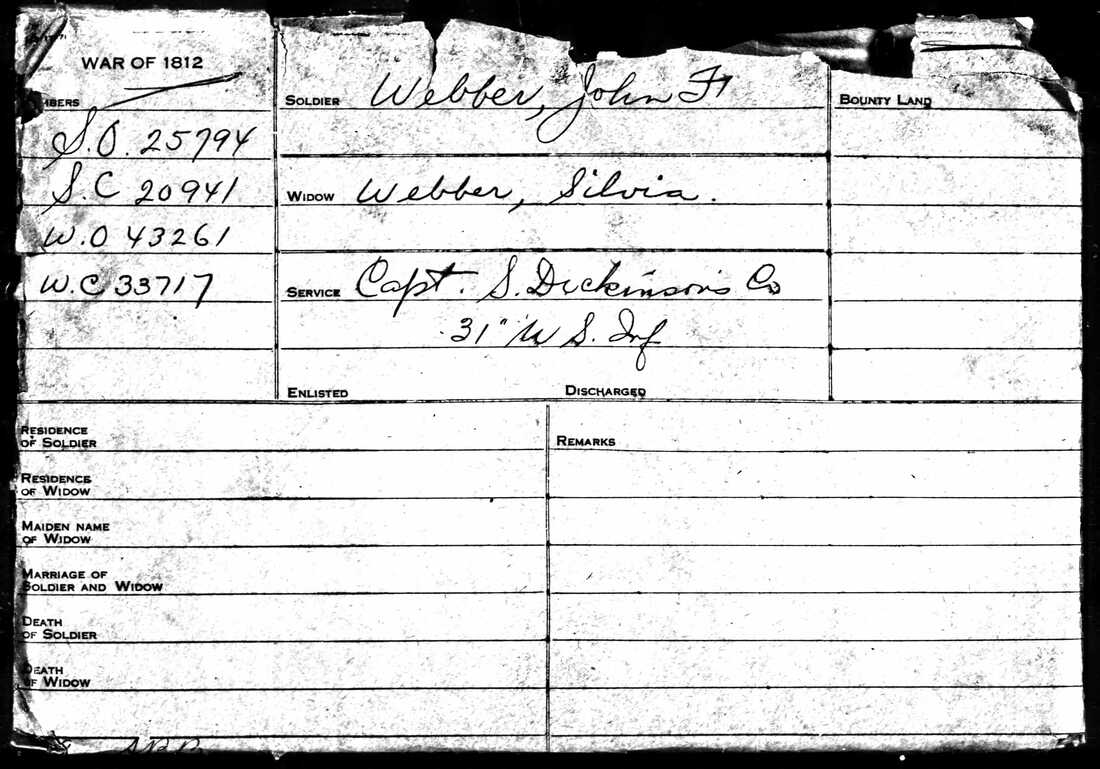 WAR OF 1812
S.O. 25794
S.C 20941
W.O 43261
W.C 33717
SOLDIER Webber, John F
WIDOW Webber, Silvia.
SERVICE Capt. S. Dickinson's Co
31" U S. Inf
ENLISTED DISCHARGED
BOUNTY LAND
RESIDENCE
OF SOLDIER
RESIDENCE
OF WIDOW
MAIDEN NAME
OF WIDOW
MARRIAGE OF
SOLDIER AND WIDOW
DEATH
OF SOLDIER
DEATH
OF WIDOW
REMARKS